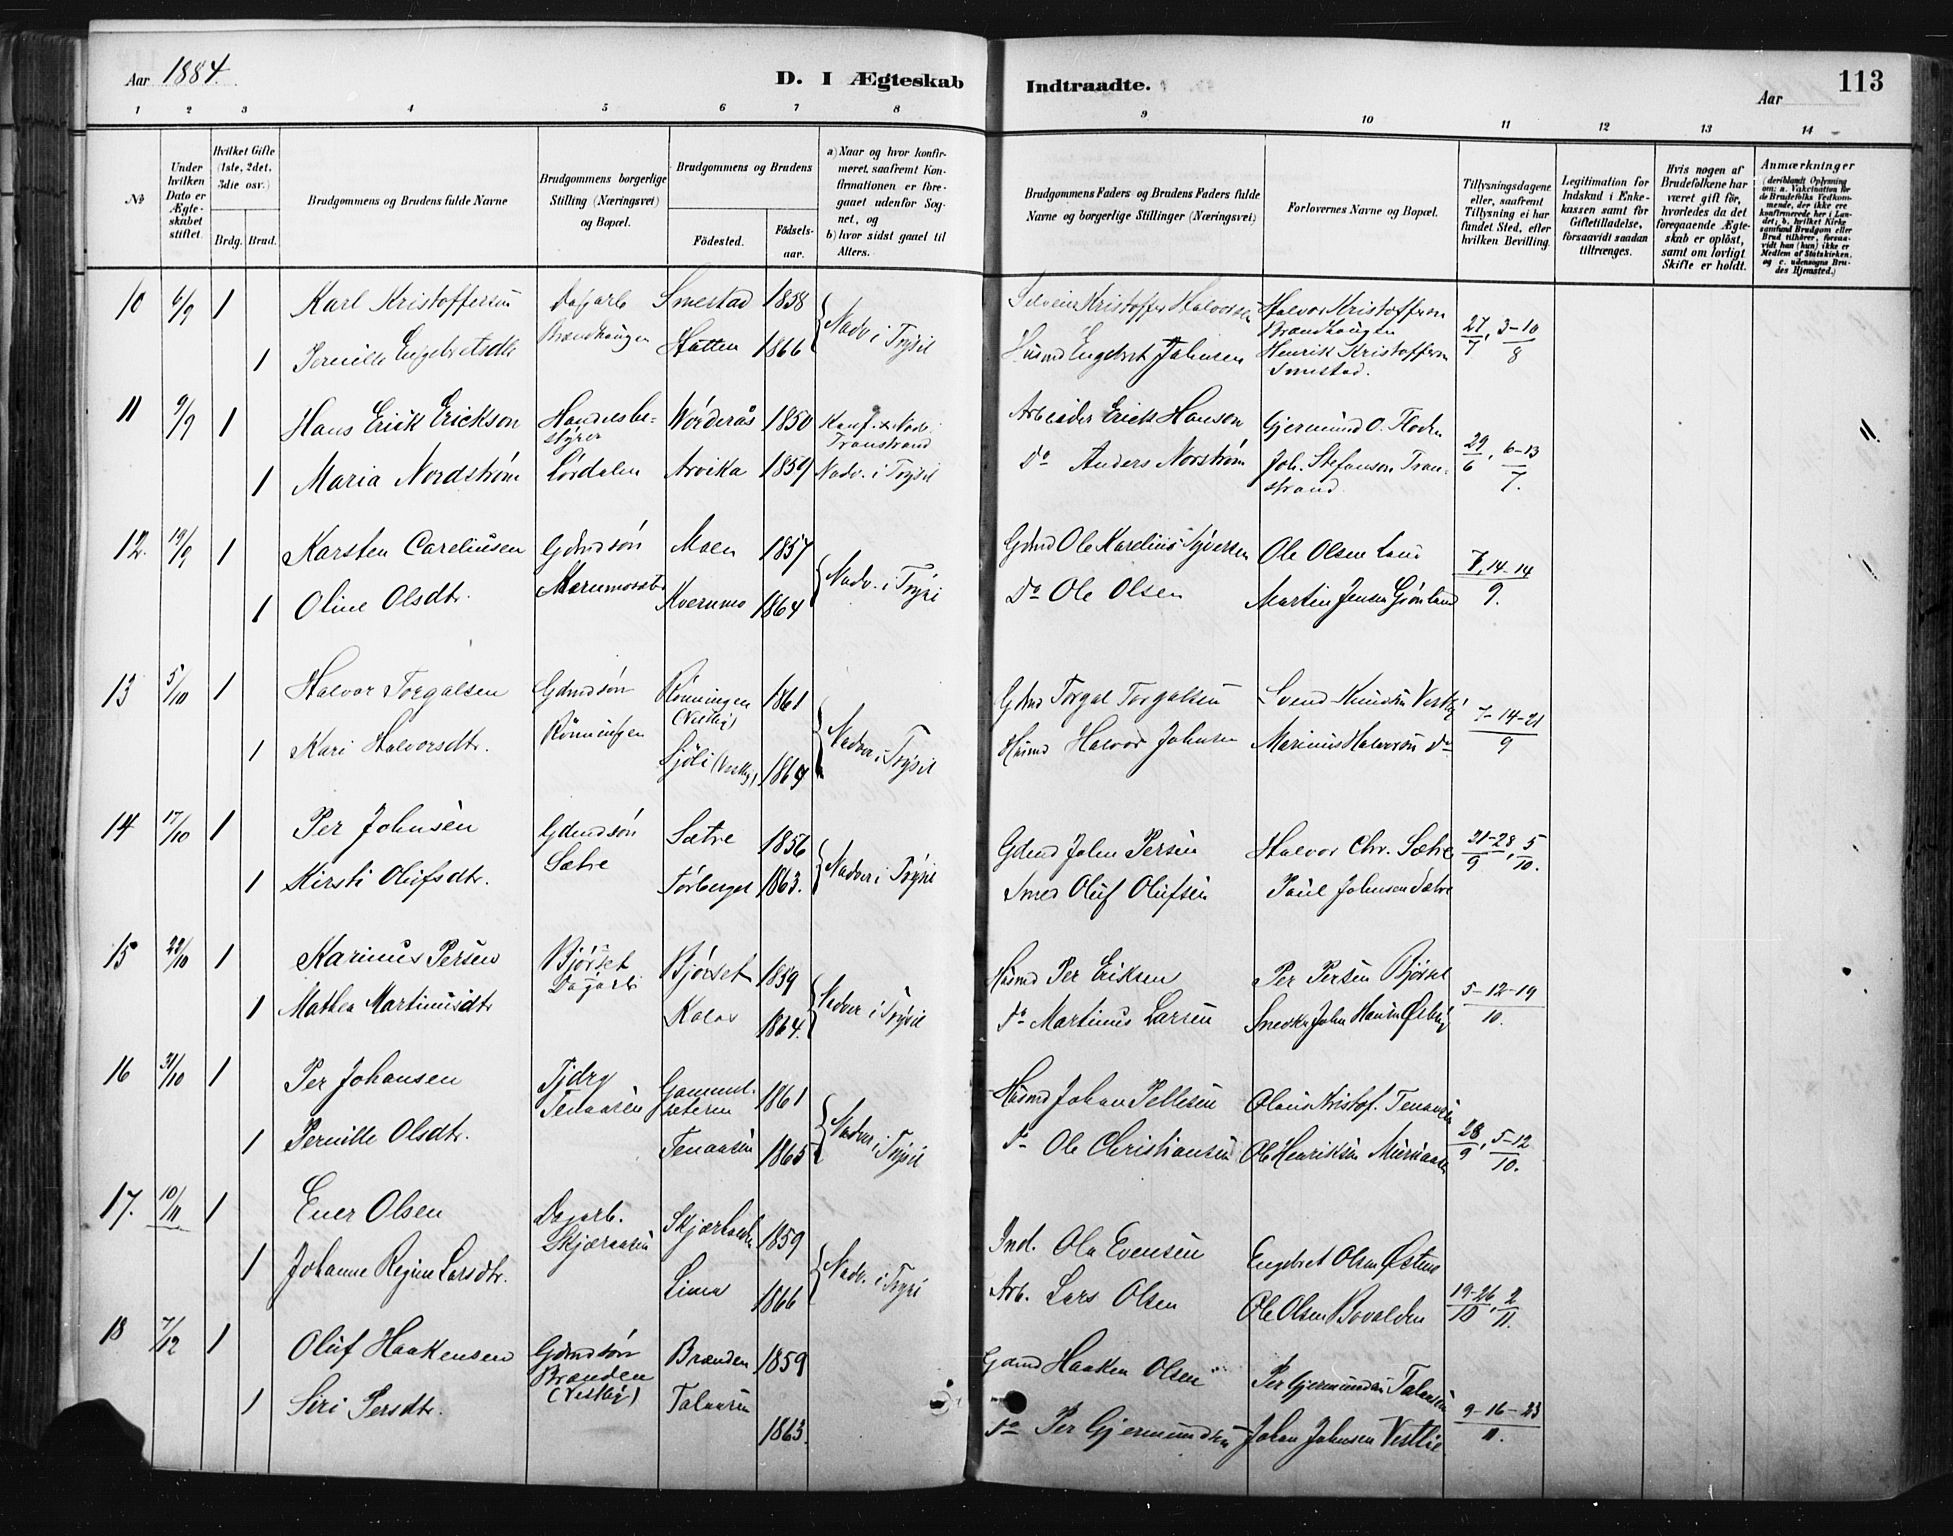 Aar 1884.
D. I Ægteskab
Indtraadte.
Aar
113
1 2 3 4 5 6 7 8 9 10 11 12 13 14
№
Under hvilken Dato er Ægteskabet stiftet.
Hvilket Gifte (1ste, 2det, 3die osv.)
Brdg. Brud.
Brudgommens og Brudens fulde Navne
Brudgommens borgerlige Stilling (Næringsvei) og Bopæl.
Brudgommens og Brudens
Födested.
Födselsaar.
a) Naar og hvor konfirmeret, saafremt Konfirmationen er foregaaet udenfor Sognet, og
b) hvor sidst gaaet til Alters.
Brudgommens Faders og Brudens Faders fulde Navne og borgerlige Stillinger (Næringsvei)
Forlovernes Navne og Bopæl.
Tillysningsdagene eller, saafremt Tillysning ei har fundet Sted, efter hvilken Bevilling.
Legitimation for Indskud i Enkekassen samt for Giftetilladelse, forsaavidt saadan tiltrænges.
Hvis nogen af Brudefolkene har været gift før, hvorledes da det foregaaende Ægteskab er oplöst, samt om lovligt Skifte er holdt.
Anmærkninger
(deriblandt Oplysning om: a. Vakcination for de Brudefolks Vedkommende, der ikke ere konfirmerede her i Landet; b. hvilket Kirkesamfund Brudgom eller Brud tilhører, forsaavidt han (hun) ikke er Medlem af Statskirken, og c. udensogns Brudes Hjemsted.)
10 6/9 1 Karl Kristoffersen Dagarb Smestad 1858 Nadv i Trysil Kristoffer Halvorsen Halvor Kristoffersen Brændhaugen 27/7, 3-10/8
1 Pernille Engebretsdtr Brændhaugen Hatten 1866 Husmd Engebret Johnsen Henrik Kristoffersen Smestad.
11 9/9 1 Hans Erick Erickson Handelsbestyrer Worderås 1850 Konf. & Nadv. i Transtrand Arbeider Erick Hanson Gjermund O. Floden 29/6, 6-13/7.
1 Maria Nordstrøm Lørdalen Arvika 1859 Nadv. i Trysil Do Anders Norstrøm Joh. Stefanson Transtrand.
12. 19/9 1 Karsten Careliusen Gdmdsøn Moen 1857 Nadv. i Trysil Gdmd Ole Karelius Syversen Ole Olsen Lund 7, 14-14/9.
1 Oline Olsdtr. Kværnmo 1864 Do Ole Olsen Martin Jensen Grønland
13 5/10 1 Halvor Torgalsen Gdmdsøn Rønningen (Vestby) 1861 Nadver i Trysil Gdmd Torgal Torgalsen Svend Knudsen Vestby 7-14-21/9
1 Kari Halvorsdtr. Rønningen Sjøli (Vestby) 1864 Husmd Halvor Johnsen Marinus Halvorsen do
14 17/10 1 Per Johnsen Gdmdsøn Sætre 1856 Nadver i Trysil Gdmd John Persen Halvor Chr. Sætre 21-28/9, 5/10.
1 Kirsti Olufsdtr. Sætre Torberget 1863. Smed Oluf Olufsen Paul Johnsen Sætre
15 22/10 1 Karinus Persen Bjørset Dagarb. Bjørset 1859 Nadver i Trysil Husmd Per Eriksen Per Persen Bjørset 5-12-19/10.
1 Mathea Martinusdtr 1864. Do Martinus Larsen Snedker John Hansen Østby
16 31/10 1 Per Johansen Tenaasen 1861 Nadver i Trysil Husmd Johan Pellesen Olaus Kristof. Tenaasen 28/9, 5-12/10.
1 Pernille Olsdtr. Tenaasen 1865 Do Ole Christiansen Ole Henriksen
17. 10/11 1 Ener Olsen Dagarb. Skjæraasen 1859 Nadv. i Trysil Ind. Ola Evensen Engebret Olsen 19-26/10, 2/11.
1 Johanne Regine Larsdtr. Lima 1866 Arb. Lars Olsen Ole Olsen
18 7/12 1 Oluf Haakensen Gdmdsøn Brænden (Vestby) Brænden 1859 Gdmd Haaken Olsen Per Gjermundsen Talaasen 9-16-23/11.
1 Siri Persdtr. Talaasen 1863. Do Per Gjermundsen Johan Johnsen Vestlie